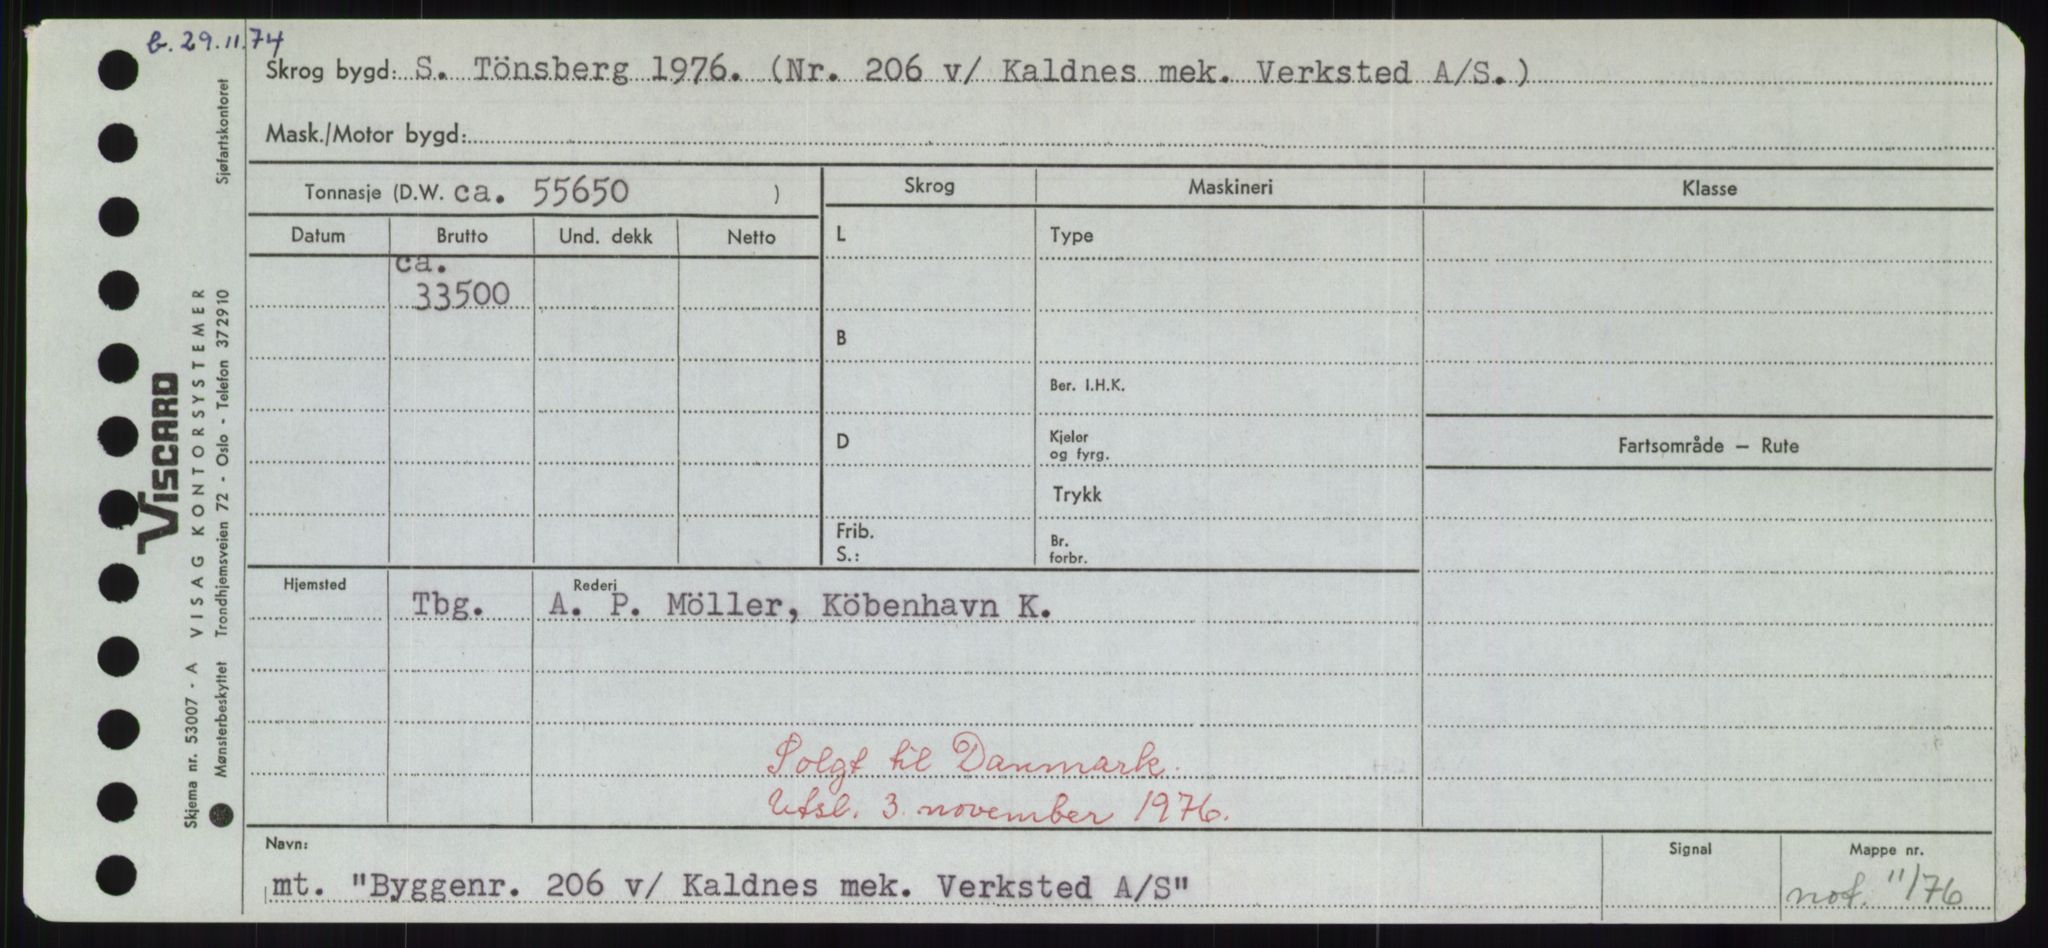 b. 29.11.74
Skrog bygd: S. Tönsberg 1976. (Nr. 206 v/ Kaldnes mek. Verksted A/S.)
Mask./Motor bygd:
Tonnasje (D.W. ca. 55650 )
Skrog Maskineri Klasse
Datum Brutto Und. dekk Netto
L Type
ca.
33500
B
Ber. I.H.K.
D Kjeler
og fyrg.
Fartsområde — Rute
Trykk
Frib.
S.:
Br.
forbr.
Hjemsted Rederi
Tbg. A. P. Möller, Köbenhavn K.
Solgt til Danmark.
Utsl. 3. november 1976.
Navn: Signal Mappe nr.
mt. "Byggenr. 206 v/ Kaldnes mek. Verksted A/S"
not. 11/76
Sjøfartskontoret
VISCARD
VISAG KONTORSYSTEMER
Trondhjemsveien 72 - Oslo - Telefon 372910
Skjema nr. 53007 - A
Mønsterbeskyttet